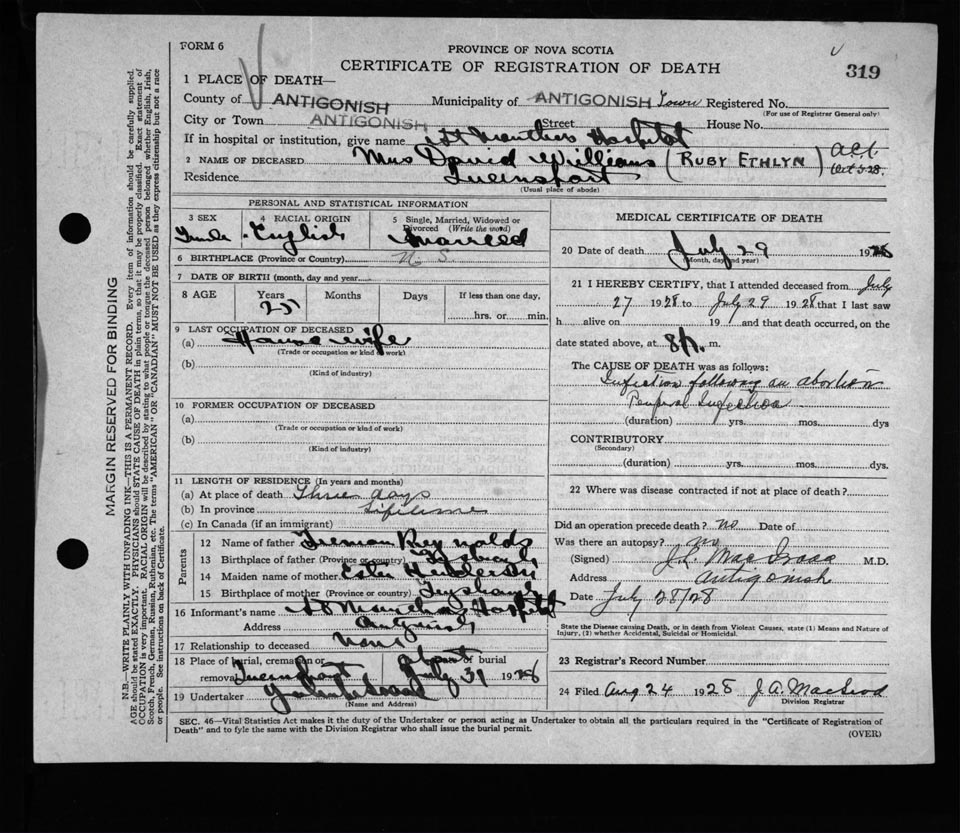 FORM 6
PROVINCE OF NOVA SCOTIA
CERTIFICATE OF REGISTRATION OF DEATH
319
1 PLACE OF DEATH—
County of ANTIGONISH Municipality of ANTIGONISH Town Registered No.
(For use of Registrar General only)
City or Town ANTIGONISH Street House No.
If in hospital or institution, give name St Marthas Hospital
2 NAME OF DECEASED Mrs David Williams (RUBY ETHLYN)
Residence Queensport
(Usual place of abode)
PERSONAL AND STATISTICAL INFORMATION
3 SEX 4 RACIAL ORIGIN 5 Single, Married, Widowed or Divorced (Write the word)
English Married
6 BIRTHPLACE (Province or Country) N S
7 DATE OF BIRTH (month, day and year)
8 AGE Years Months Days If less than one day,
25 hrs. or min.
9 LAST OCCUPATION OF DECEASED
(a) House wife
(Trade or occupation or kind of work)
(b)
(Kind of industry)
10 FORMER OCCUPATION OF DECEASED
(a)
(Trade or occupation or kind of work)
(b)
(Kind of industry)
11 LENGTH OF RESIDENCE (In years and months)
(a) At place of death Three days
(b) In province Lifetime
(c) In Canada (if an immigrant)
Parents
12 Name of father Freman Reynolds
13 Birthplace of father (Province or country)
14 Maiden name of mother
15 Birthplace of mother (Province or country)
16 Informant's name Hospital
Address
17 Relationship to deceased None
18 Place of burial, cremation or removal Queensport Date of burial July 31 1928
19 Undertaker
(Name and Address)
MEDICAL CERTIFICATE OF DEATH
20 Date of death July 29 1928
(Month, day and year)
21 I HEREBY CERTIFY, that I attended deceased from July
27 1928 to July 29 1928 that I last saw
h alive on 19 and that death occurred, on the
date stated above, at m.
The CAUSE OF DEATH was as follows:
Infection following an abortion
Puerperal Infection
(duration) yrs. mos. dys
CONTRIBUTORY
(Secondary)
(duration) yrs. mos. dys.
22 Where was disease contracted if not at place of death?
Did an operation precede death? no Date of
Was there an autopsy? no
(Signed) M.D.
Address Antigonish
Date July 28/28
State the Disease causing Death, or in death from Violent Causes, state (1) Means and Nature of
Injury, (2) whether Accidental, Suicidal or Homicidal.
23 Registrar's Record Number
24 Filed Aug 24 1928 J. A. MacLeod
Division Registrar
SEC. 46—Vital Statistics Act makes it the duty of the Undertaker or person acting as Undertaker to obtain all the particulars required in the "Certificate of Registration of
Death" and to fyle the same with the Division Registrar who shall issue the burial permit.
(OVER)
MARGIN RESERVED FOR BINDING
N.B.—WRITE PLAINLY WITH UNFADING INK—THIS IS A PERMANENT RECORD. Every item of information should be carefully supplied.
AGE should be stated EXACTLY. PHYSICIANS should STATE CAUSE OF DEATH in plain terms, so that it may be properly classified. Exact statement of
OCCUPATION is very important. RACIAL ORIGIN will be described by stating to what people or tongue the deceased person belonged whether English, Irish,
Scotch, French, German, Russian, Ruthenian, etc. The terms "AMERICAN" OR "CANADIAN" MUST NOT BE USED as they express citizenship but not a race
or people. See instructions on back of Certificate.